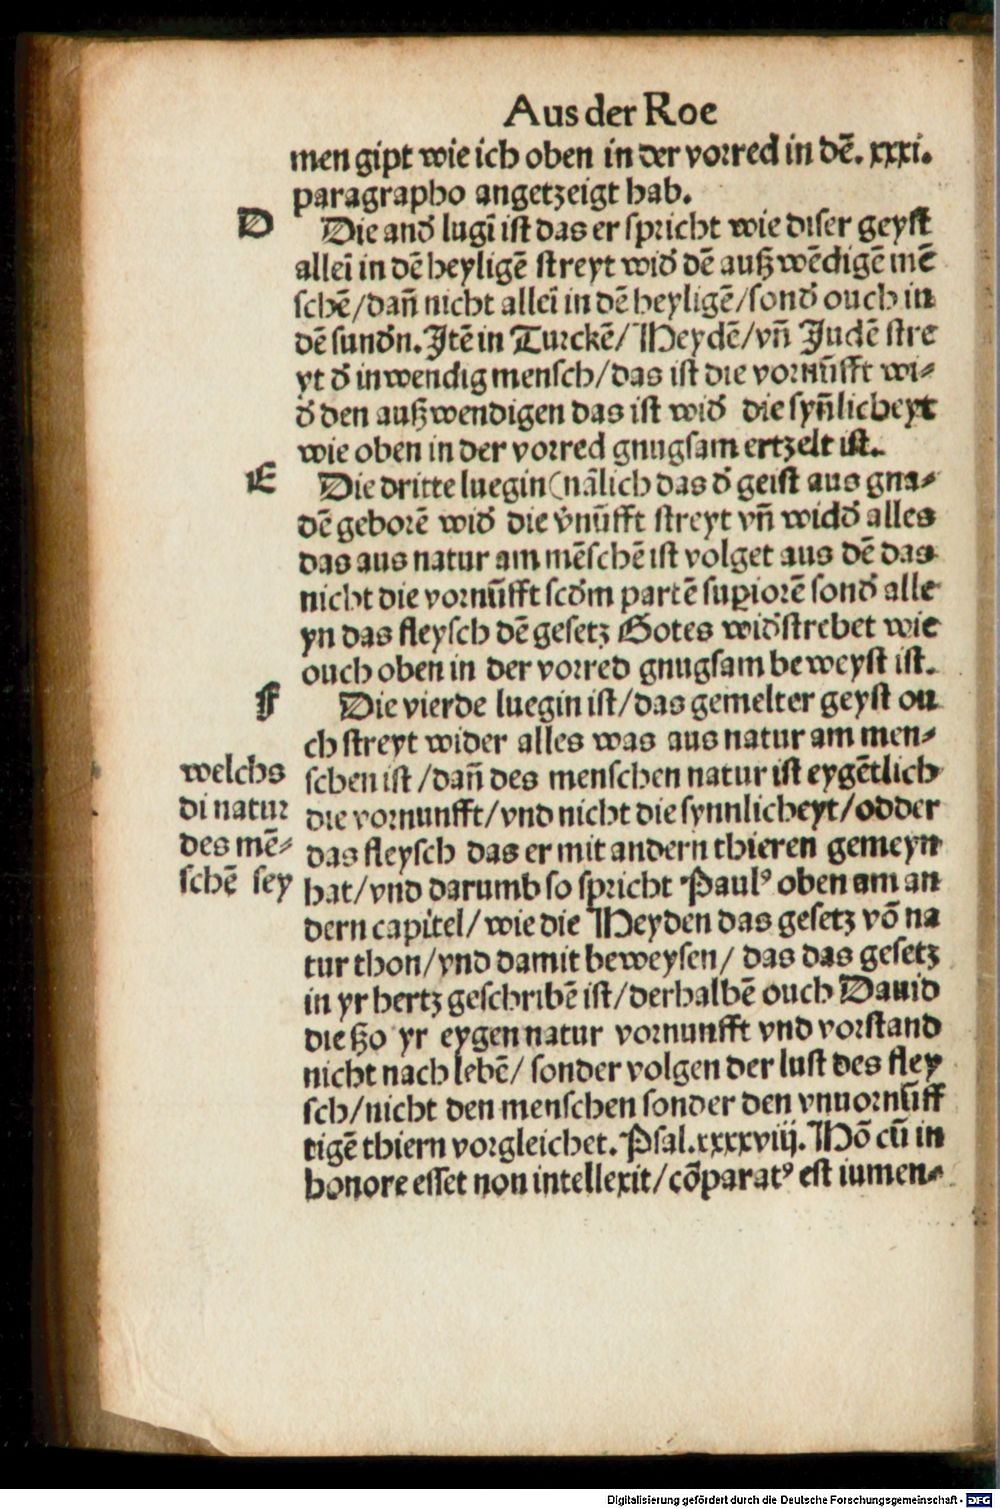 Aus der Roe
men gipt wie ich oben in der vorred in dē. xxxi.
paragrapho angetzeigt hab.
D
Die and̄ lugī ist das er spricht wie diser geyst
alleī in dē heyligē streyt wid̄ dē auſz wēdigē mē
schē/dañ nicht alleī in dē heyligē/sond̄ ouch in
dē sund̄n. Jtē in Turckē/ Heydē/vñ Judē stre
yt d̄ inwendig mensch/das ist die vornūfft wi⸗
d̄ den auſzwendigen das ist wid̄ die syñlicheyt
wie oben in der vorred gnugsam ertzelt ist.
E
Die dritte luegin (nālich das d̄ geist aus gna⸗
dē geborē wid̄ die v̄nūfft streyt vñ widd̄ alles
das aus natur am mēschē ist volget aus dē das
nicht die vornūfft scd̄m partē supiorē sond̄ alle
yn das fleysch dē gesetz Gotes wid̄strebet wie
ouch oben in der vorred gnugsam beweyst ist.
F
Die vierde luegin ist/das gemelter geyst ou
ch streyt wider alles was aus natur am men⸗
schen ist/dañ des menschen natur ist eygētlich
die vornunfft/vnd nicht die synnlicheyt/odder
das fleysch das er mit andern thieren gemeyn
hat/vnd darumb so spricht Paulꝰ oben am an
dern capitel/wie die Heyden das gesetz vō na
tur thon/vnd damit beweysen/ das das gesetz
in yr hertz geschribē ist/derhalbē ouch Dauid
die ſzo yr eygen natur vornunfft vnd vorstand
nicht nach lebē/ sonder volgen der lust des fley
sch/nicht den menschen sonder den vnuornūff
tigē thiern vorgleichet. Psal.xxxxviij. Hō cū in
honore esset non intellexit/cōparatꝰ est iumen⸗
welchs
di natur
des mē⸗
schē sey
Digitalisierung gefördert durch die Deutsche Forschungsgemeinschaft - DFG